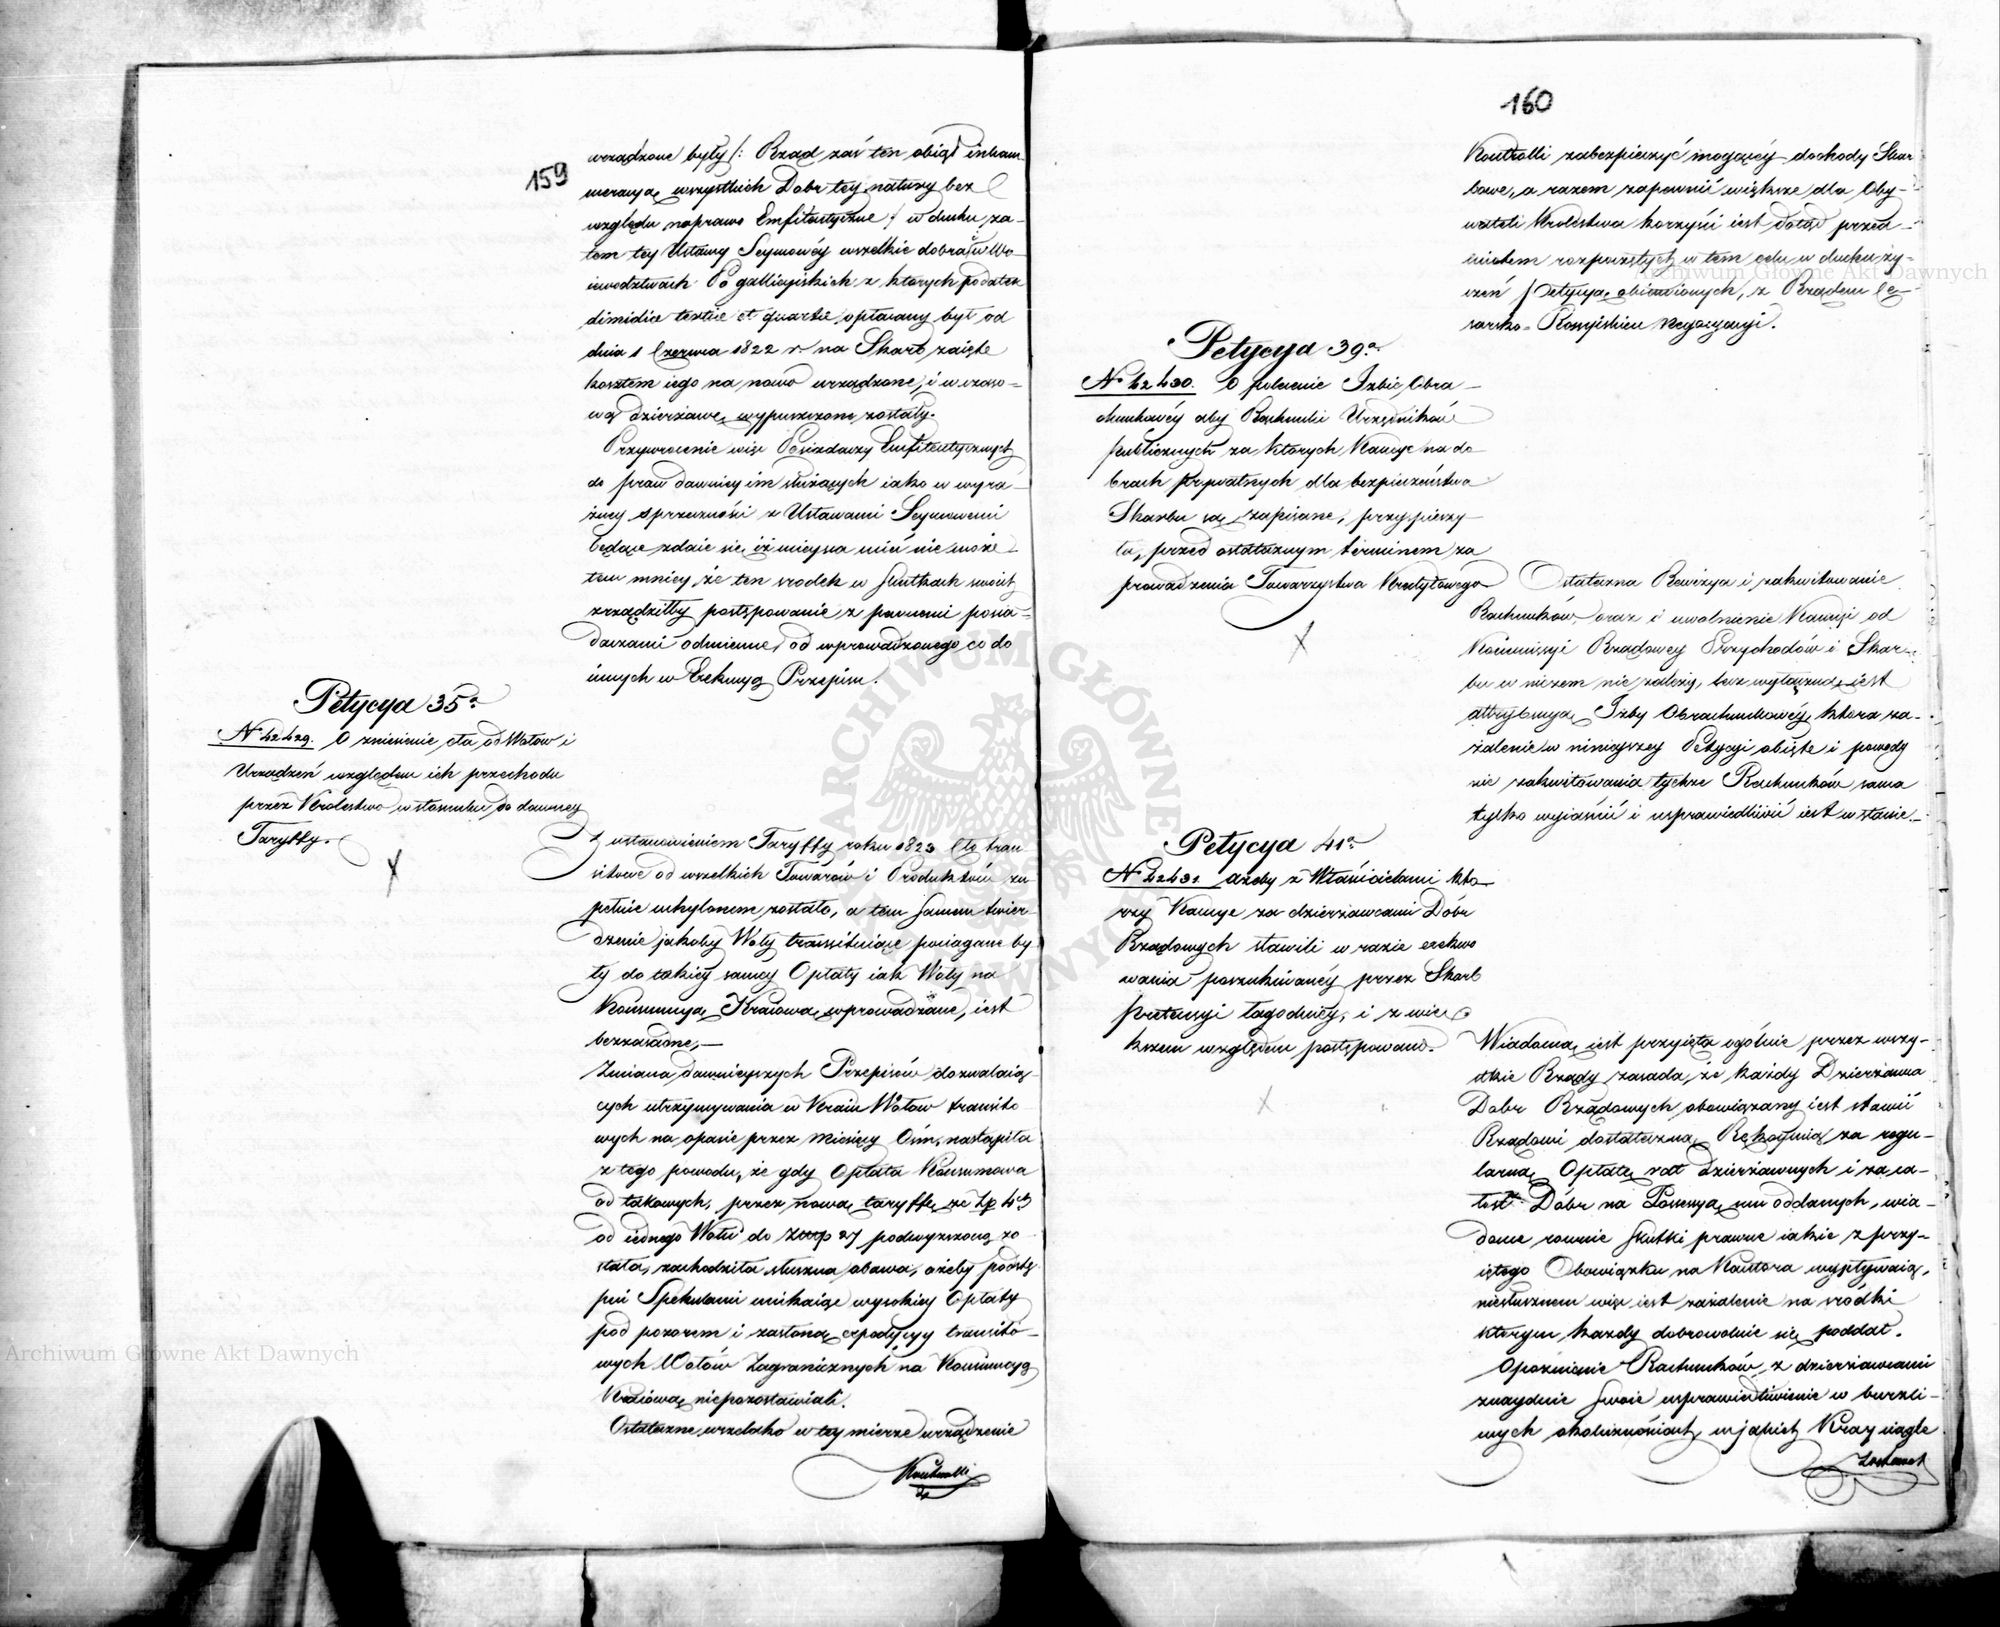 159
urządzone były /: Rząd zaś ten objął inkam-
meracyą wszystkich Dobr tey natury bez
względu na prawo Emfiteutyczne :/ w duchu za-
tem tey Ustawy Seymowéy wszelkie dobra w Wo-
iewodztwach Po gallicyiskich z ktorych podatek
dimidiae tertiae et quartae opłacany był od
dnia 1 Czerwca 1822 r. na Skarb zaięte
kosztem iego na nowo urządzone, i w czaso-
wą dzierżawę wypuszczone zostały.
Przywrocenie więc Posiadaczy Emfiteutycznych
do praw dawniey im służących iako w wyra-
źney sprzeczności z Ustawami Seymowemi
będące zdaie się, iż mieysca mieć nie może
tem mniey, że ten srodek w skutkach swoich
zrządziłby postępowanie z pewnemi posia-
daczami odmienne, od wprowadzonego co do
innych w Exekucyą Przepisu.
Petycya 35a
N 42429. O zniesienie cła od Wołów i
Urządzeń względem ich przechodu
przez Krolestwo w stosunku do dawney
Taryffy.
Z ustanowieniem Taryffy roku 1823 Cło tran-
sitowe od wszelkich Towarów i Produktów zu-
pełnie uchylonem zostało, a tem samem twier-
dzenie jakoby Woły transitujące pociągane by-
ły do takiey samey Opłaty iak Woły na
Konsumcyą Kraiową wprowadzane, iest
bezzasadne,—
Zmiana dawnieyszych Przepisów dozwalaią-
cych utrzymywania w Kraiu Wołow transito-
wych na opasie przez Miesięcy Ośm, nastąpiła
z tego powodu, że gdy Opłata Konsumowa
od takowych, przez nową taryffę ze Zp
od iednego Wołu do 27 podwyższoną zo-
stała, zachodziła słuszna obawa, ażeby podstę-
pni Spekulanci unikaiąc wysokiey Opłaty
pod pozorem i zasłoną expedycyy transito-
wych Wołów Zagranicznych na Konsumcyą
Kraiową niepozostawiali.
Ostateczne wszelako w tey mierze urządzenie
Kontrolli
160
Kontrolli zabezpieczyć mogącéy dochody Skar-
bowe, a razem zapewnić większe dla Oby-
wateli Krolestwa korzyści iest dotąd przed-
miotem rozpoczętych w tem celu w duchu ży-
czeń Petycyą obiawionych, z Rządem Ce-
sarsko-Rossyiskim Negocyacyi.
Petycya 39a
N 42430. O polecenie Izbie Obra-
chunkowéy aby Rachunki Urzędników
publicznych za ktorych Kaucye na do-
brach prywatnych dla bezpieczeństwa
Skarbu są zapisane, przyspieszy-
ła, przed ostatecznym terminem za-
prowadzenia Towarzystwa Kredytowego
Ostateczna Rewizya i zakwitowanie
Rachunków, oraz i uwolnienie Kaucyi od
Kommissyi Rządowey Przychodów i Skar-
bu w niczem nie zależy, lecz wyłączną iest
attrybucyą Izby Obrachunkowéy, która za-
żalenie w ninieyszey Petycyi obięte i powody
nie zakwitowania tychże Rachunków sama
tylko wyiaśnić i usprawiedliwić iest w stanie.
Petycya 41a
N 42431. ażeby z Właścicielami kto-
rzy Kaucye za dzierżawcami Dóbr
Rządowych stawili w razie exekwo-
wania poszukiwanéy przez Skarb
pretensyi łagodniéy, i z więk-
kszem względem postępowano.
Wiadoma iest przyięta ogólnie przez wszy-
stkie Rządy zasada, że każdy Dzierżawca
Dobr Rządowych obowiązany iest stawić
Rządowi dostateczną Rękoymią za regu-
larną Opłatę rat dzierżawnych i za ca-
łość Dóbr na Possessyą mu oddanych, wia-
dome rownie skutki prawne iakie z przy-
iętego Obowiązku na Kautora wypływaią,
niesłusznem więc iest zażalenie na srodki
ktorym każdy dobrowolnie się poddał.
Opoźnienie Rachunków z dzierżawcami
znayduie swoie usprawiedliwienie w burzli-
wych okolicznościach, w jakich Kray nagle
Archiwum Główne Akt Dawnych
Archiwum Główne Akt Dawnych
ARCHIWUM GŁÓWNE AKT DAWNYCH